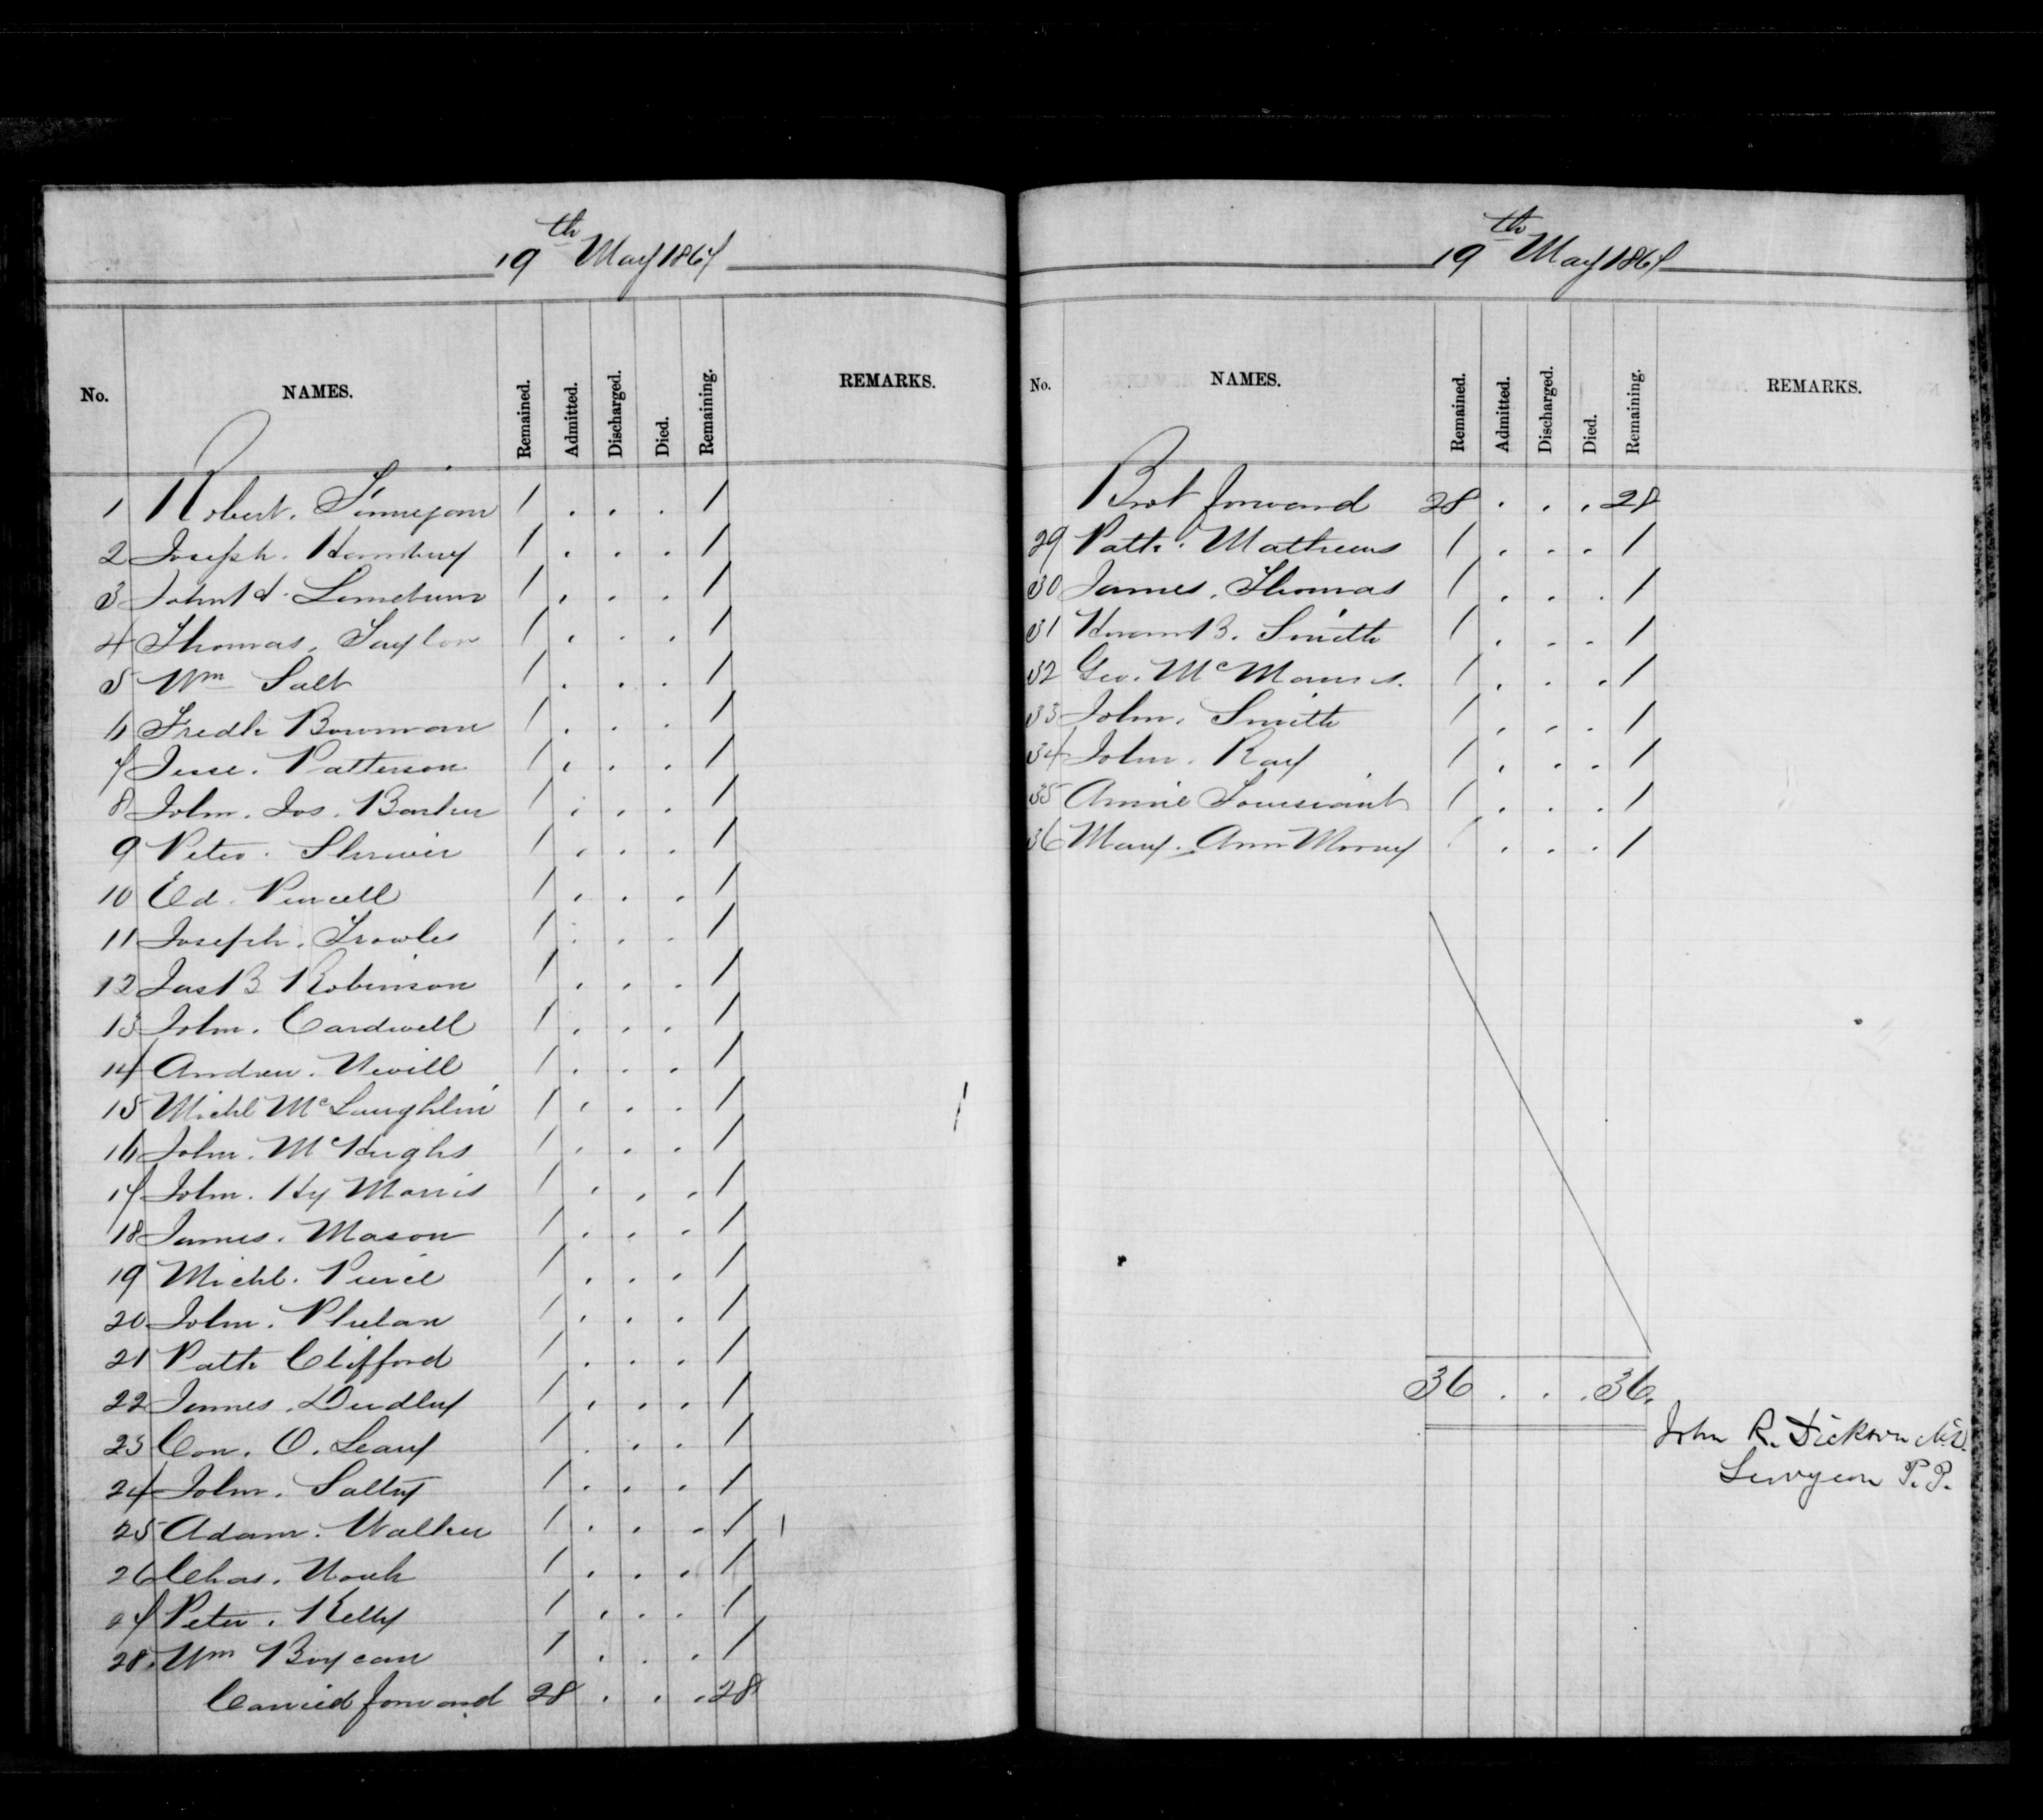 19th May 1867
No. NAMES. Remained. Admitted. Discharged. Died. Remaining. REMARKS.
1 Robert. Finnejan 1 . . . 1
2 Joseph. Hambury 1 . . . 1
3 John H. 1 . . . 1
4 Thomas. Taylor 1 . . . 1
5 Wm Salt 1 . . . 1
6 Fredk Bowman 1 . . . 1
7 Jesse. Patterson 1 . . . 1
8 John. Jos. Barker 1 . . . 1
9 Peter. Shriver 1 . . . 1
10 Ed. Purcell 1 . . . 1
11 Joseph. Trowles 1 . . . 1
12 Jas B Robinson 1 . . . 1
13 John. Cardwell 1 . . . 1
14 Andrew. Nevill 1 . . . 1
15 Michl McLaughlin 1 . . . 1
16 John. McHughs 1 . . . 1
17 John. Hy Morris 1 . . . 1
18 James. Mason 1 . . . 1
19 Michl. Pierce 1 . . . 1
20 John. Phelan 1 . . . 1
21 Patk Clifford 1 . . . 1
22 James. Dudley 1 . . . 1
23 Con. O. Leary 1 . . . 1
24 John. Salty 1 . . . 1
25 Adam. Walker 1 . . . 1
26 Chas. 1 . . . 1
27 Peter. Kelly 1 . . . 1
28. Wm Boycan 1 . . . 1
Carried forward 28 . . . 28
19th May 1867
No. NAMES. Remained. Admitted. Discharged. Died. Remaining. REMARKS.
Brot forward 28 . . . 28
29 Patk. Mathews 1 . . . 1
30 James. Thomas 1 . . . 1
31 Hiram B. Smith 1 . . . 1
32 Geo. McManus. 1 . . . 1
33 John. Smith 1 . . . 1
34 John. Ray 1 . . . 1
35 Annie Toussaint 1 . . . 1
36 Mary. Ann Morney 1 . . . 1
36 . . . 36.
John R. Dickson M.D.
Surgeon P.P.